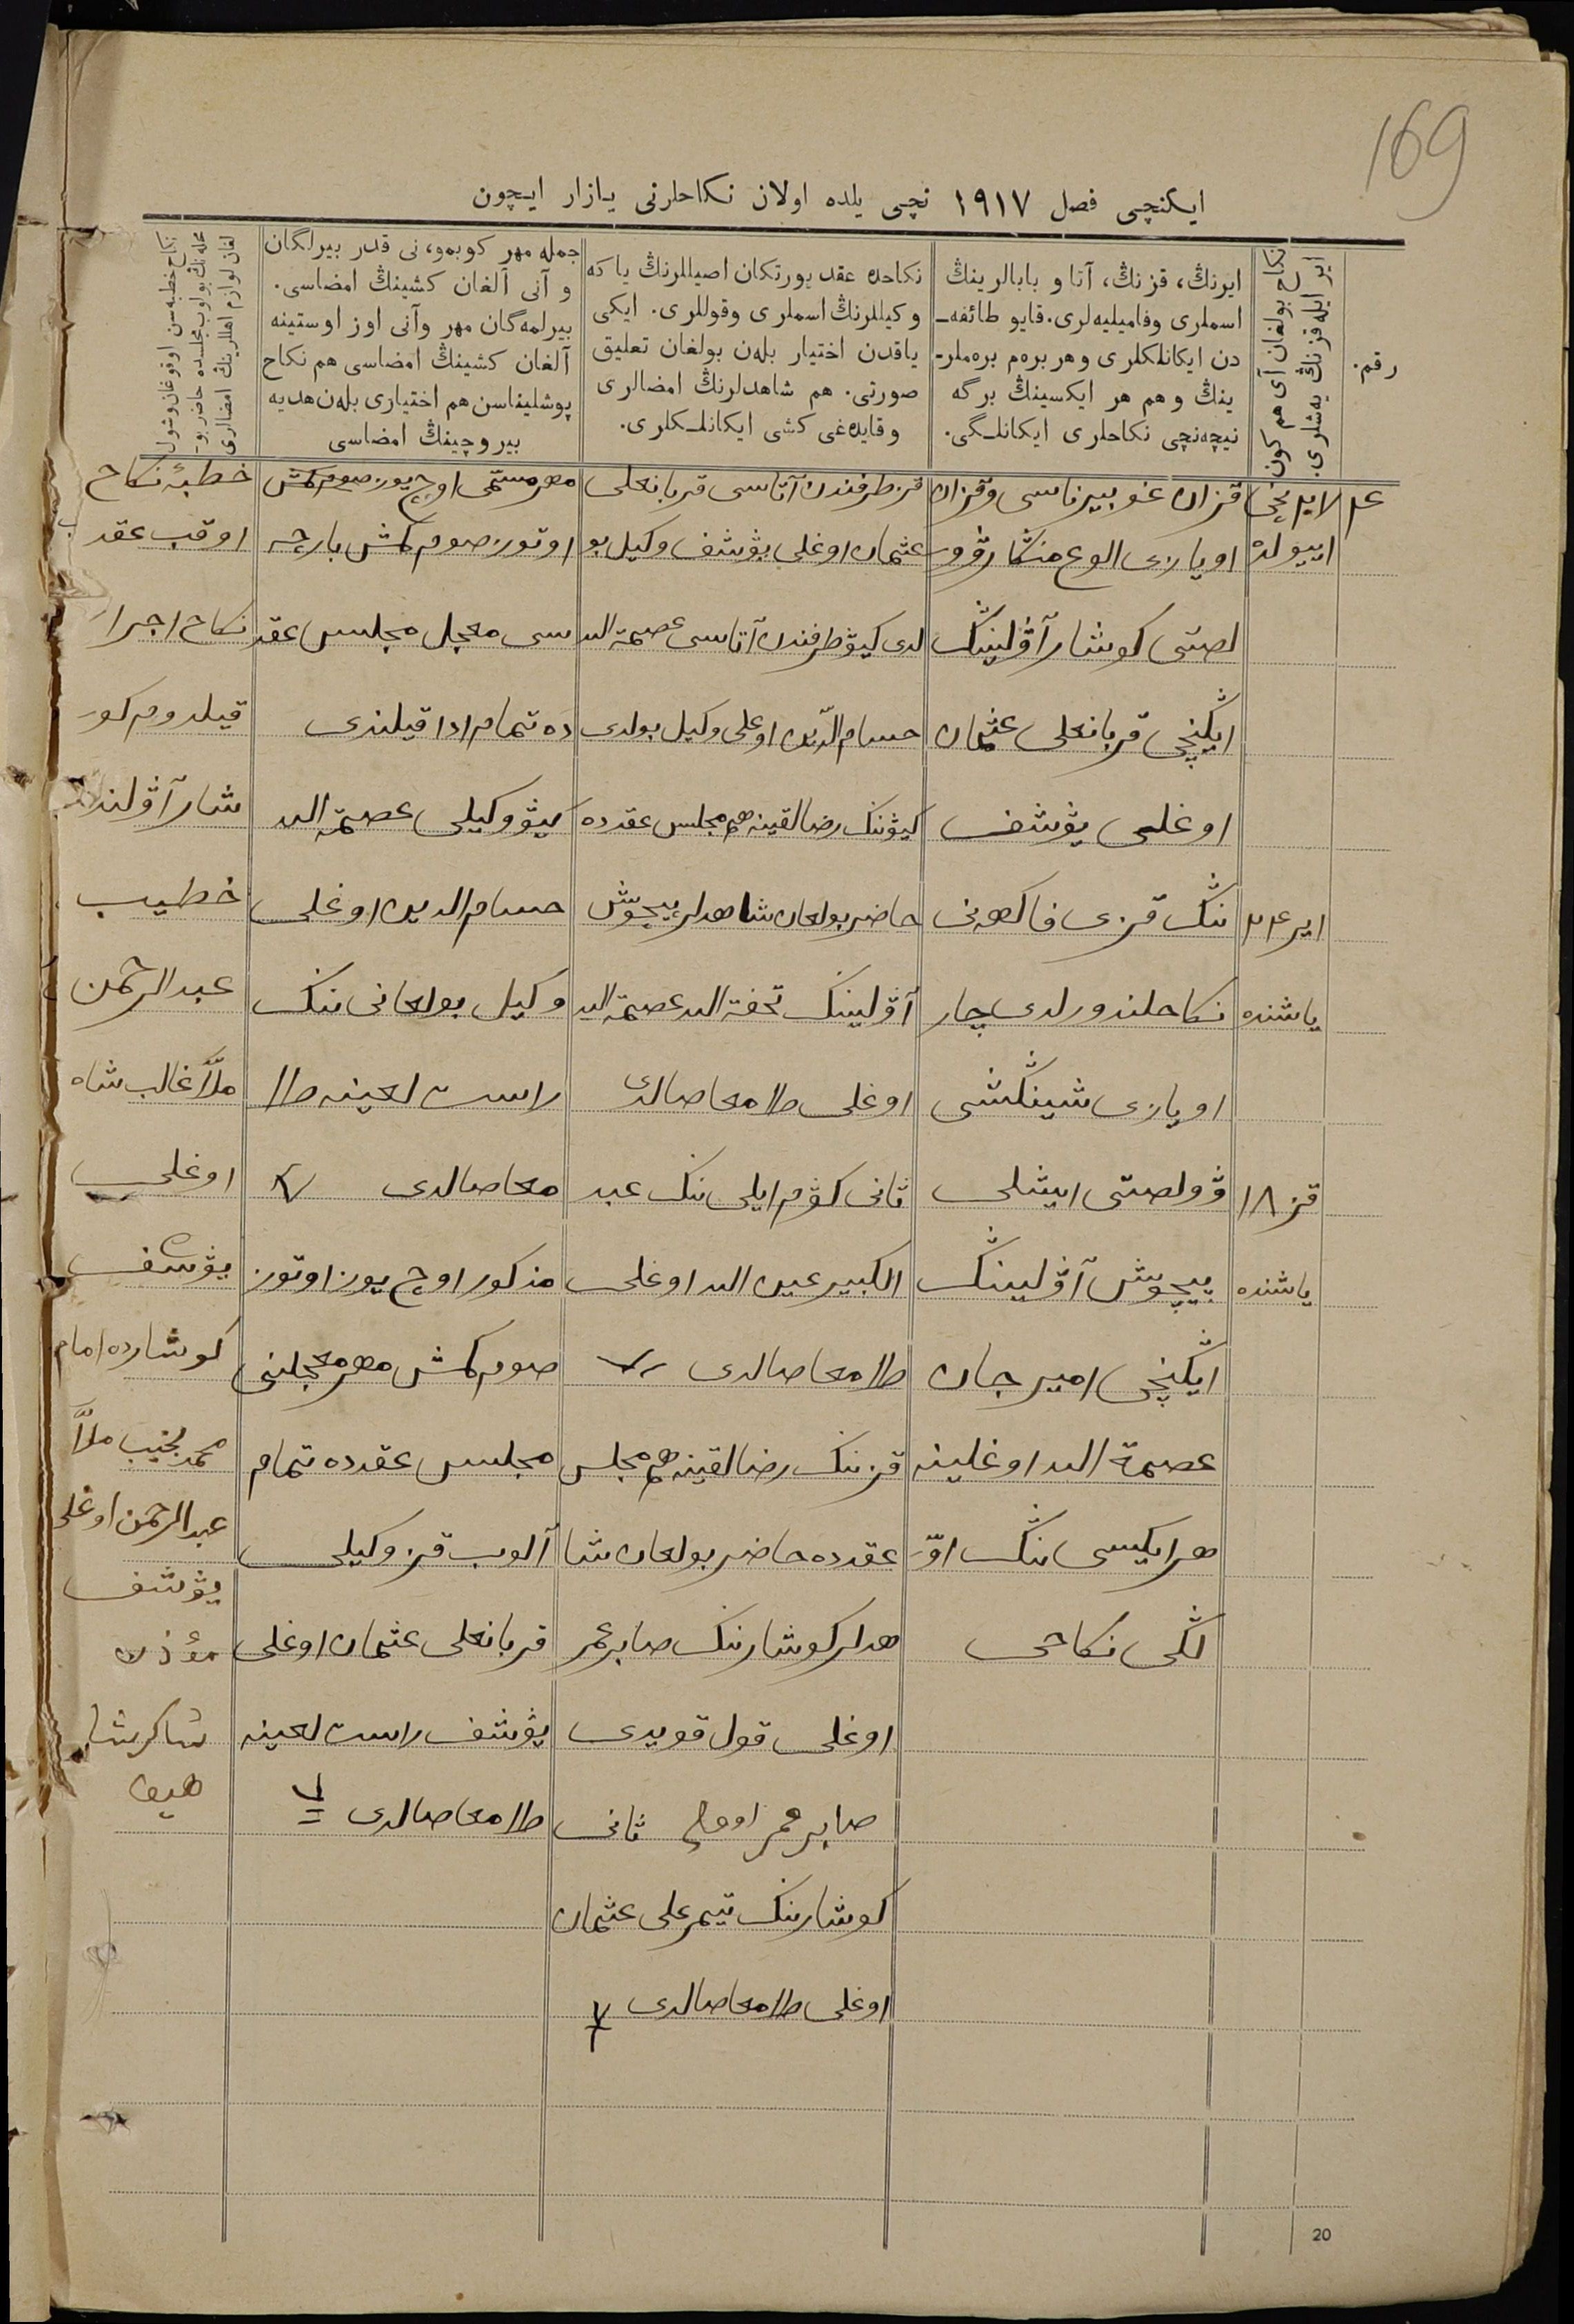 169
ایكنچی فصل ١٩١٧ نچی یلده اولان نكاحلرنی یازار ایچون
رقم.
نكاح بولغان آی هم كون
ایر ایله قزنڭ یه‌شلری.
ایرنڭ، قزنڭ، آتا و بابالرینڭ
اسملری وفامیلیه‌لری. قایو طائفه‌ـ
دن ایكانلكلری وهر بره‌م بره‌ملرـ
ینڭ وهم هر ایكسینڭ برگه
نیچه‌نچی نكاحلری ایكانلـگی.
نكاحده عقد یورتكان اصیللرنڭ یا كه
وكیللرنڭ اسملری وقوللری. ایكی
یاقدن اختیار بله‌ن بولغان تعلیق
صورتی. هم شاهدلرنڭ امضالری
وقایده‌غی كشی ایكانلـكلری.
جمله مهر كوبمو، نی قدر بیرلگان
و آنی آلغان كشینڭ امضاسی.
بیرلمه‌گان مهر وآنی اوز اوستینه
آلغان كشینڭ امضاسی هم نكاح
پوشلیناسن هم اختیاری بله‌ن هدیه
بیروچینڭ امضاسی
نكاح خطبه‌سن اوقوغان وشول
محله‌نڭ بولوب مجلسده حاضر بوـ
لغان لوازم اهللرینڭ امضالری
اییولڭ
ایر ٢٤
یاشنده
قز ١٨
یاشنده
قزان غوبیرناسی وقزان
اویازی الوع منڭار وۋ
لصتی كوشار آۋلینڭ
ایڭنچی قربانعلی عثمان
اوغلی یۋشف
ننڭ قزی فاكهه‌نی
نكاحلندورلدی چار
اویازی شینڭشی
ۋولصتی ایشلی
بیچوش آۋلینڭ
ایڭنچی امیرجان
عصمة الله اوغلینه
هر ایكیسی ننڭ اوّ
لڭی نكاحی
قز طرفندن آتاسی قربانعلی
عثمان اوغلی یۋشف وكیل بو
لدی كیۋ طرفندن آتاسی عصمة الله
حسام الدّین اوغلی وكیل بولدی
كیۋننڭ رضالقینه هم مجلس عقدده
حاضر بولعان شاهدلر بیچوش
آۋلینڭ تحفة الله عصمة الله
اوغلی طامعا صالدی
ثانی كۋم ایلی ننڭ عبد
الكبیر عین الله اوغلی
طامعا صالدی
قزننڭ رضالقینه هم مجلس
عقدده حاضر بولعان شا
هدلر كوشارننڭ صابر عمر
اوغلی قول قویدی
صابر عمر اوغلی ثانی
كوشارننڭ تیمرعلی عثمان
اوغلی طامعا صالدی
مهر مسمّی اوچ یوز صوم كمش
اوتوز صوم كمش بارچه
سی معجل مجلس عقد
ده تمام ادا قیلندی
كیۋ وكیلی عصمة الله
حسام الدین اوغلی
وكیل بولعانی ننڭ
راست لعینه طا
معا صالدی
مذكور اوچ یوز اوتوز
صوم كمش مهر معجلنی
مجلس عقدده تمام
آلوب قز وكیلی
قربانعلی عثمان اوغلی
یۋشف راست لعینه
طامعا صالدی
خطبهٔ نكاح
اوقب عقد
نكاح اجرا
قیلدوم كو
شار آۋلنده
خطیب
عبد الرحمن
ملاّ غالب شاه
اوغلی
یۋسف
كوشارده امام
محمد نجیب ملاّ
عبد الرحمن اوغلی
یۋشف
مؤذن
شاكر شا
هیف
20